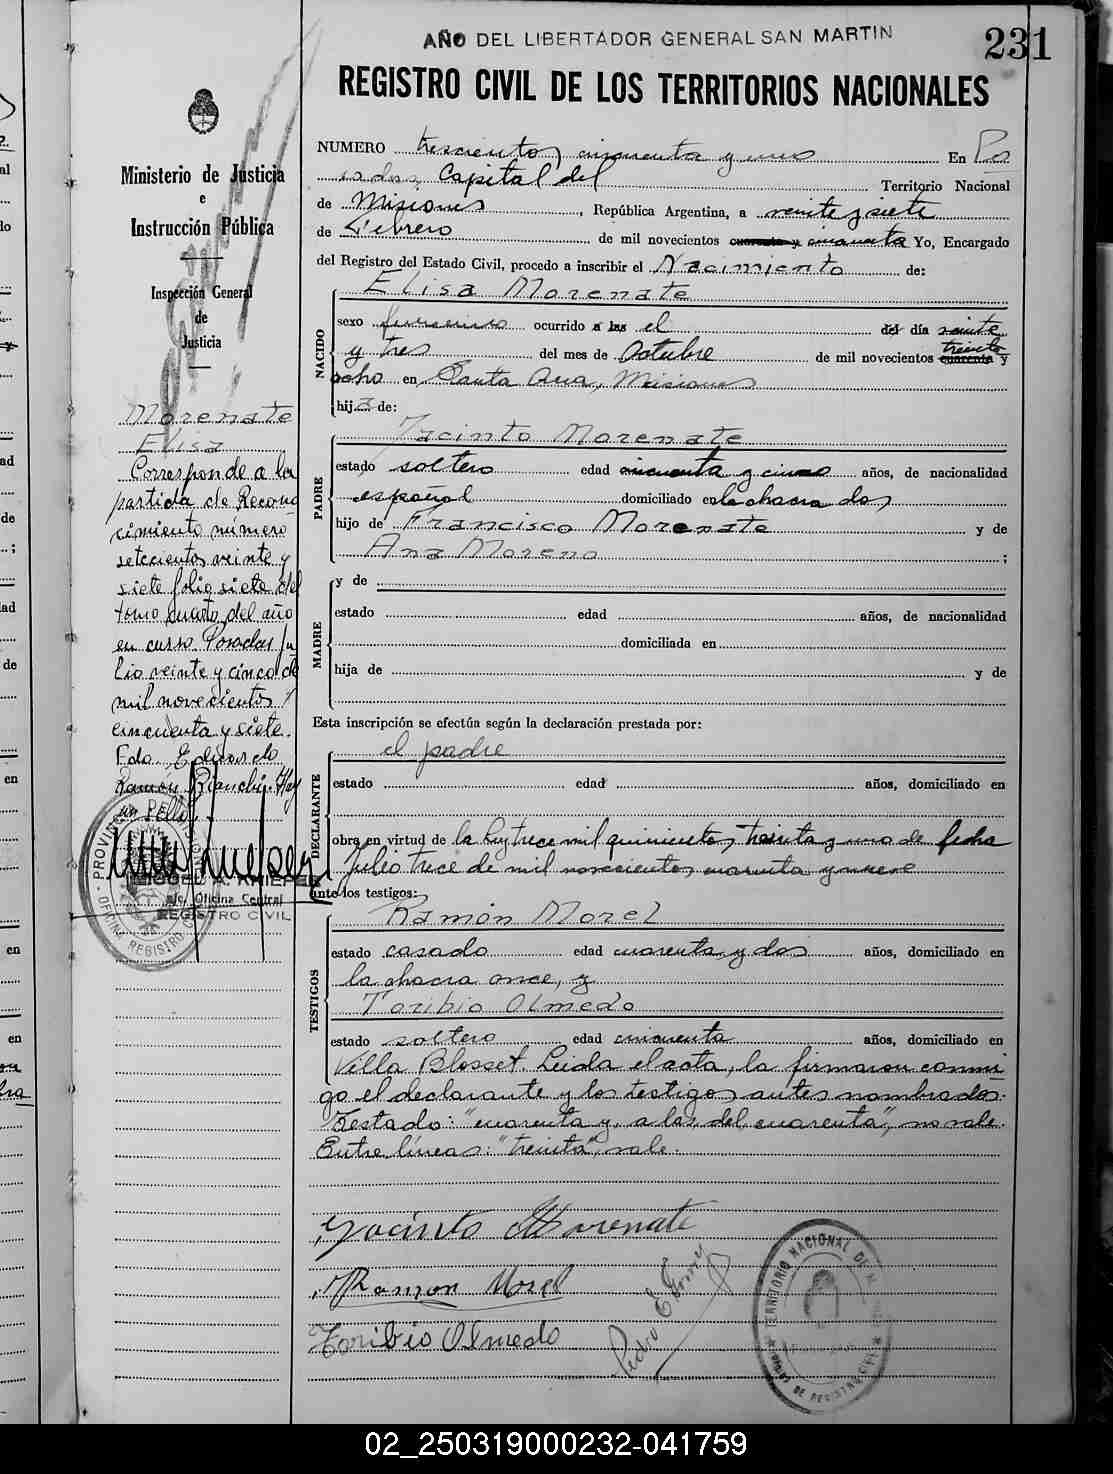 AÑO DEL LIBERTADOR GENERAL SAN MARTIN
231
REGISTRO CIVIL DE LOS TERRITORIOS NACIONALES
Ministerio de Justicia
e
Instrucción Pública
Inspección General
de
Justicia
Morenate
Elisa
Corresponde a la
partida de Recono
cimiento número
setecientos veinte y
siete folio siete del
tomo cuarto del año
en curso. Posadas Ju
lio veinte y cinco de
mil novecientos
cincuenta y siete.
Fdo. Eduardo
Ramón Bianchi. Hay
un sello
PROVINCIA DE MISIONES
OFICINA REGISTRO
MIGUEL A. KNIEPER
a/c. Oficina Central
REGISTRO CIVIL
NUMERO trescientos cincuenta y uno En Po
sadas, Capital del Territorio Nacional
de Misiones, República Argentina, a veinte y siete
de Febrero de mil novecientos cuarenta y cincuenta Yo, Encargado
del Registro del Estado Civil, procedo a inscribir el Nacimiento de:
Elisa Morenate
NACIDO
sexo femenino ocurrido a las el del día veinte
y tres del mes de Octubre de mil novecientos cuarenta y
treinta
ocho en Santa Ana, Misiones
hija de:
Jacinto Morenate
PADRE
estado soltero edad cincuenta y cinco años, de nacionalidad
español domiciliado en la chacra dos
hijo de Francisco Morenate y de
Ana Moreno ;
MADRE
y de
estado edad años, de nacionalidad
domiciliada en
hija de y de
Esta inscripción se efectúa según la declaración prestada por:
el padre
DECLARANTE
estado edad años, domiciliado en
obra en virtud de la ley trece mil quinientos treinta y uno de fecha
Julio trece de mil novecientos cuarenta y nueve
ante los testigos:
Ramón Morel
TESTIGOS
estado casado edad cuarenta y dos años, domiciliado en
la chacra once, y
Toribio Olmedo
estado soltero edad cincuenta años, domiciliado en
Villa Blosset. Leida el acta, la firmaron conmi
go el declarante y los testigos antes nombrados.
Testado: "cuarenta y, a las, del, cuarenta", no vale.
Entre líneas: "treinta", vale.
Jacinto Morenate
Ramon Morel
Toribio Olmedo
Pedro E
TERRITORIO NACIONAL DE
02_250319000232-041759